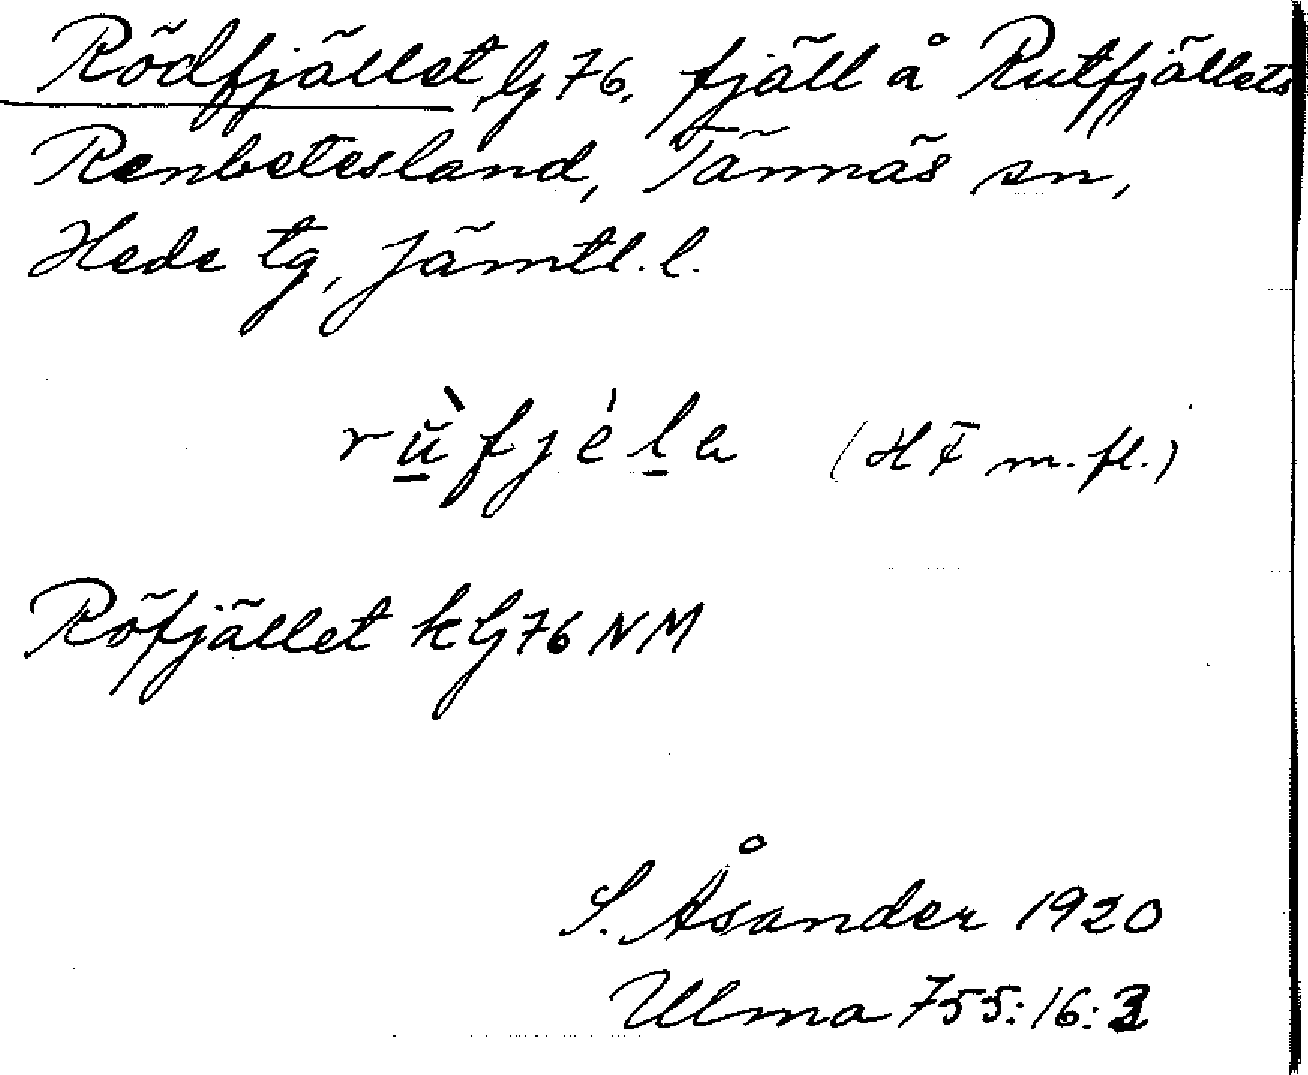 Rödfjället, G 76, fjäll å Rutfjällets
Renbetesland, Tännäs sn,
Hede tg, Jämtl. l.
rùfjéla (HF m. fl.)
Röfjället kG 76 NM
S. Åsander 1920
Ulma 755:16:3